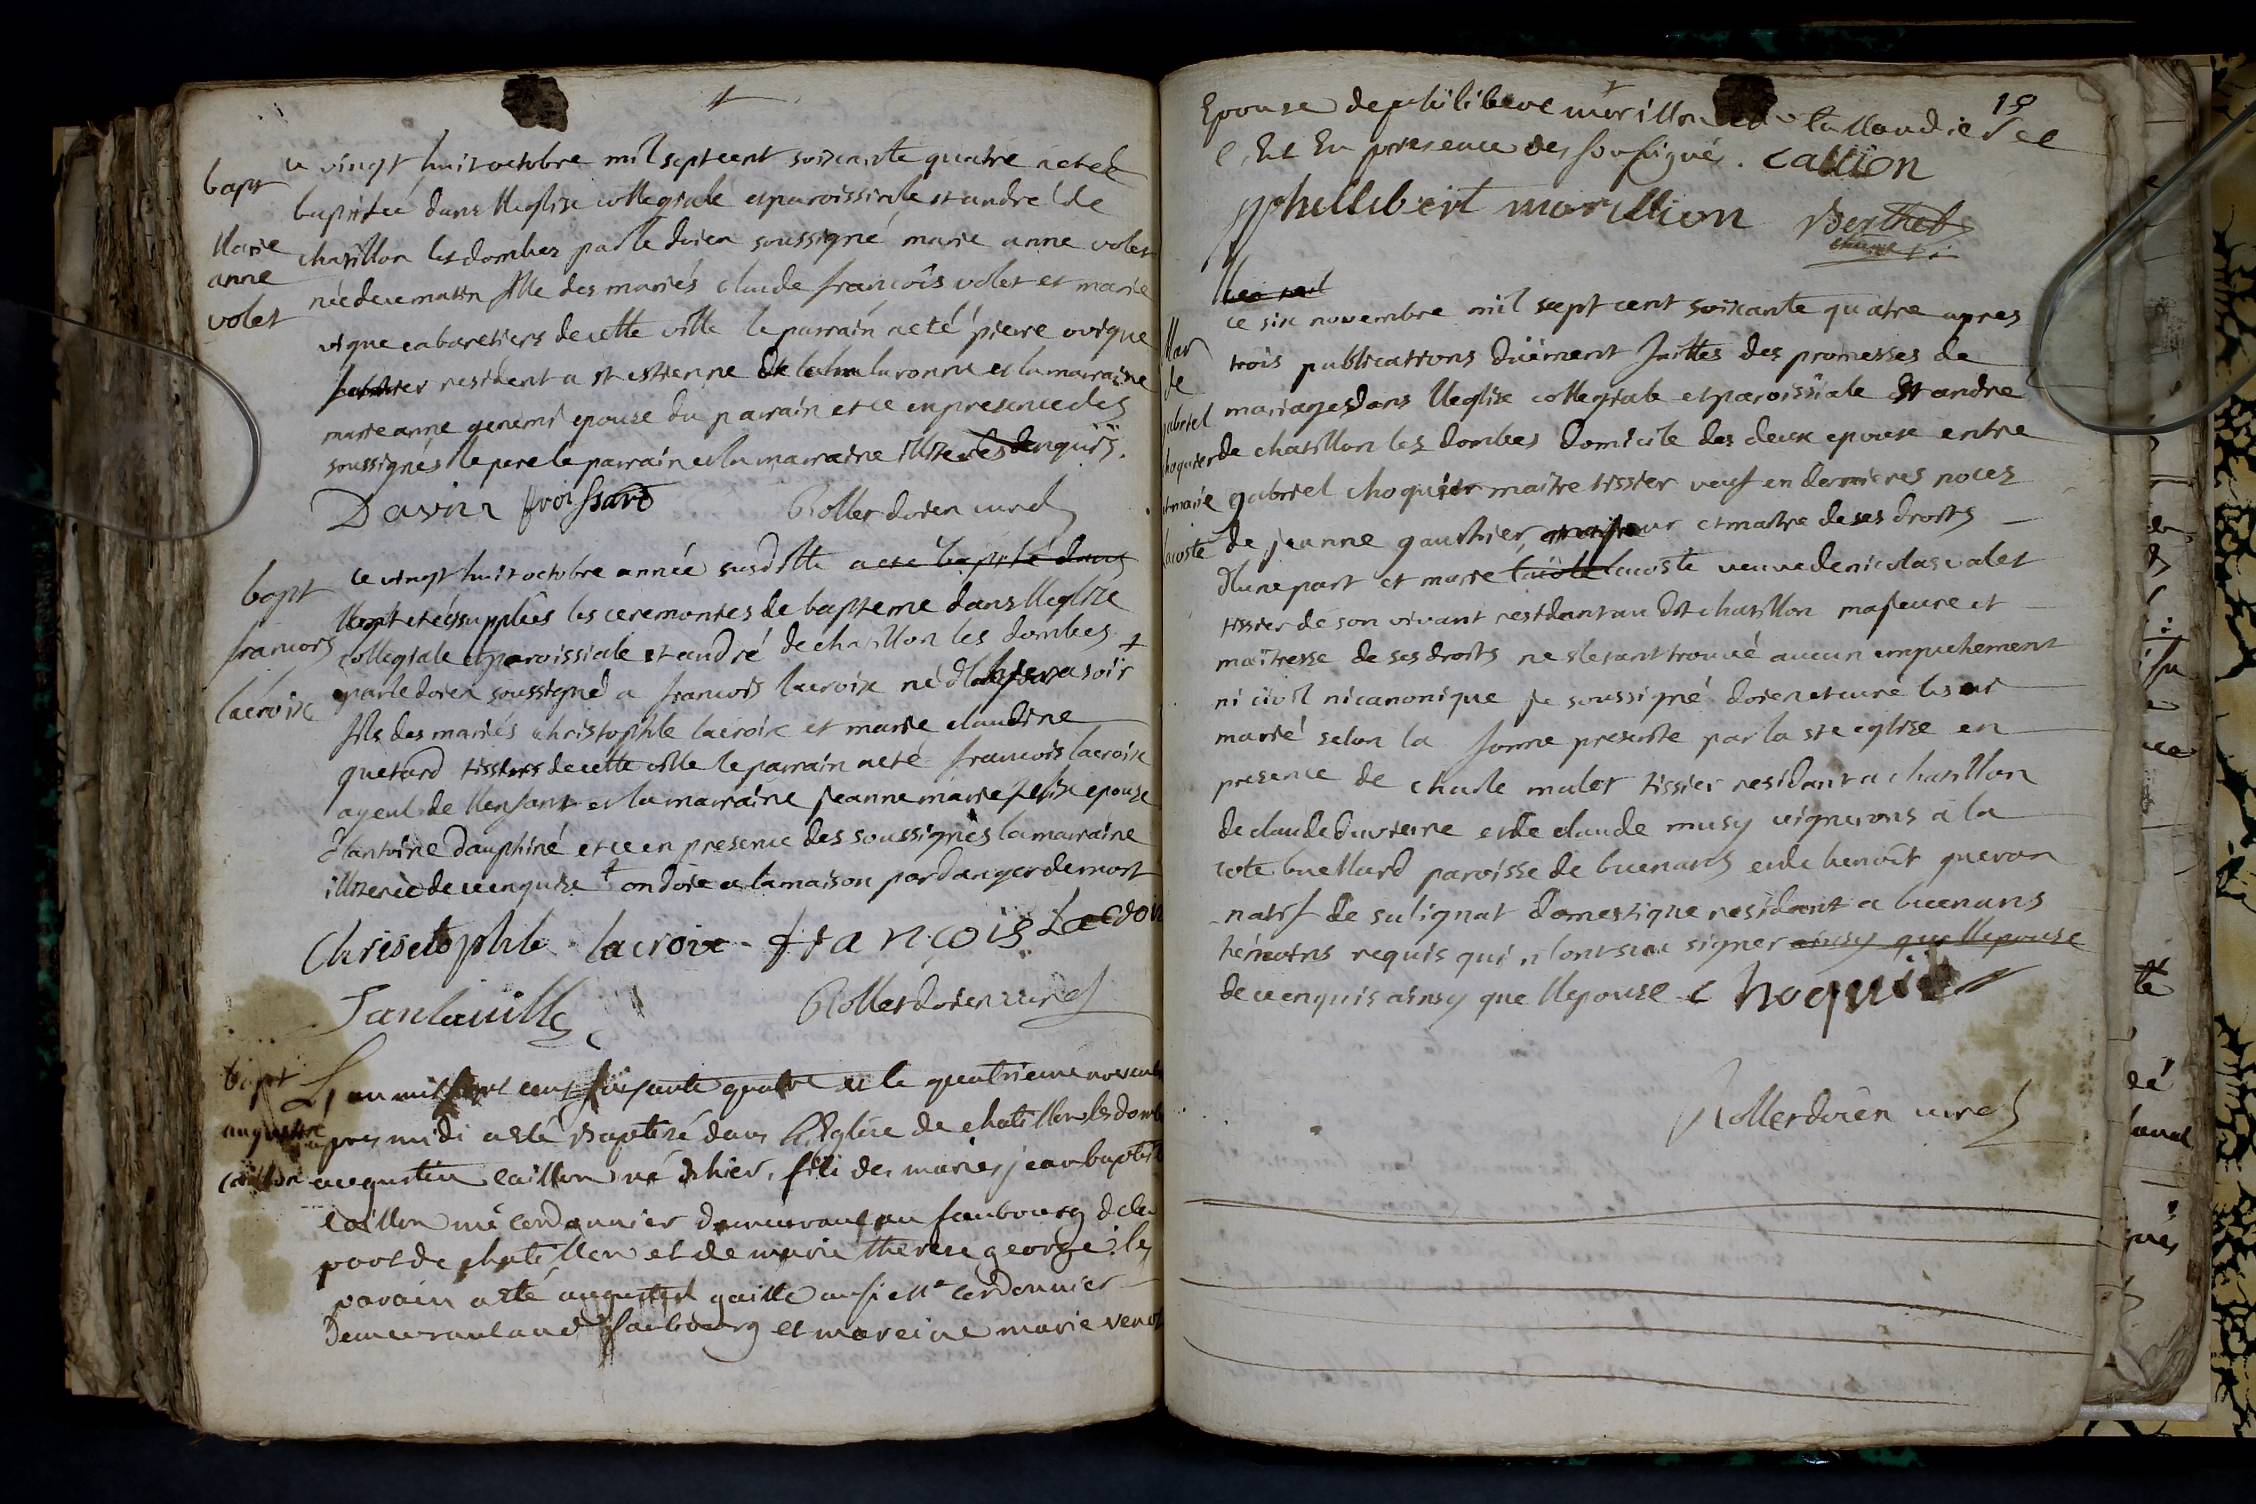 ce vingt huit octobre mil sept cent soixante quatre a eté
bapt
baptisée dans lleglise collegiale et paroissiale st andré de
Marie
chatillon les dombes par le doien soussigné marie anne volet
anne
née de ce matin fille des mariés claude françois volet et marie
volet
vigne cabaretiers de cette ville le parrain a eté pierre
resident a st estienne et la marraine
marie anne epouse du parrain et ce en presence des
soussignés le pere le parrain et la marraine illiterés enquis.
Davin froissard Rollet doien curé
ce vingt huit octobre année susditte a eté baptisé dans
bapt
ont eté supplées les ceremonies de bapteme dans lleglise
francois
collegiale et paroissiale st andré de chatillon les dombes +
par le doien soussigné a francois lacroix né soir
lacroix
fils des mariés christophle lacroix et marie claudine
quetard tissiers de cette ville le parrain a eté francois lacroix
ayeul de llenfant et la marraine jeanne marie epouse
d'antoine dauphiné et ce en presence des soussignés la marraine
illiterée de ce enquise + ondoié a la maison par danger de mort
Chrisetophle lacroix francois Lacroi
Janlaville Rollet doien curé
bapt
L'an mil sept cent soisante quatre et le quatrieme novemb
augustin
apres midi a eté Baptisé dans l'Eglise de chatillon les domb
caillon
augustin caillon né d'hier, fils des mariés jean baptist
caillon me cordonnier demeurant au faubourg de la
port de chatillon et de marie therese george. le
parain a eté augustin gaille aussi me cordonnier
Demeurant aud faubourg et mareine marie venot
19
Epouse de philibert morillon
e, Et En presence des soussignés. caillon
phillibert morillion Berthet
ce six novembre mil sept cent soixante quatre apres
Mar
trois publications düement faittes des promesses de
de
mariages dans lleglise collegiale et paroissiale St andre
gabriel
de chatillon les dombes domicile des deux epoux entre
choquier
gabriel choquier maitre tissier veuf en dernieres noces
et marie
de jeanne gauthier, majeur et maitre de ses droits
lacoste
d'une part et marie lacoste veuve de nicolas valet
tissier de son vivant residant au dit chatillon majeure et
maitresse de ses droits ne s'etant trouvé aucun empechement
ni civil ni canonique je soussigné doien et curé les ai
marié selon la forme prescrite par la ste eglise en
presence de charle mulet tissier residant a chatillon
de claude et de claude musy vignerons a la
cote buellard paroisse de buenans et de benoît gueran
natif de sulignat domestique residant a buenans
temoins requis qui n'ont scu signer ainsy que llepouse
de ce enquis ainsy que llepouse choquie
Rollet doien curé